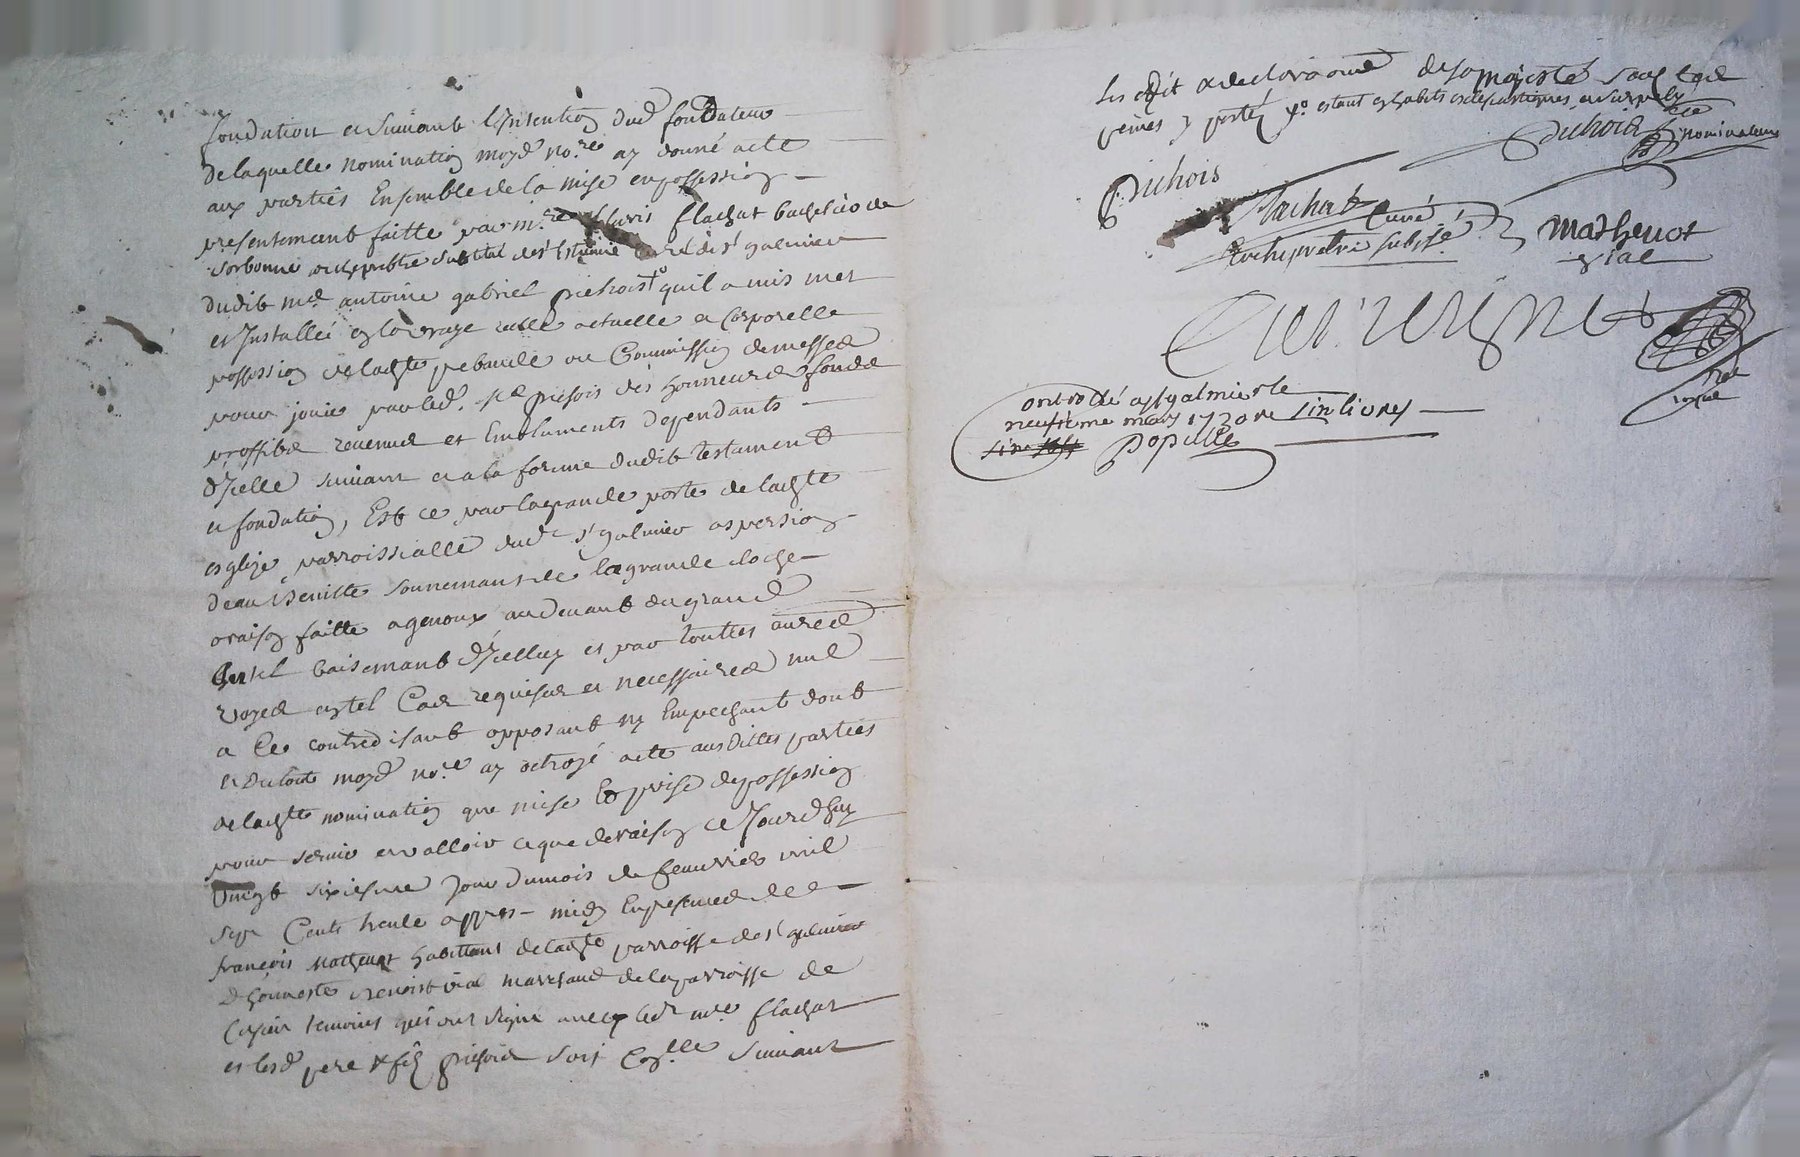 fondation et suivant l'Intention dud fondateur
de laquelle nomination moyd no.re ay donné acte
aux parties Ensemble de la mise en possession
presentement faitte par m.re flachat bachelier de
Sorbonne archiprebtre substitué de st Etienne Curé de st galmier
dudit me antoine gabriel prehois + qu'il a mis met
et Installé en la vraye reelle actuelle et Corporelle
possession de ladte prebande ou Commission de messes
pour jouir par led. sr prehois des honneurs fonds
proffits revenus et Emoluments dependants
d'Icelle suivant et a la forme dudit testament
et fondation, Est ce par la grande porte de ladte
esglize parroissialle dud st galmier aspersion
d'eau Beniste sonnement de la grande cloche
oraison faitte a genoux au devant du grand
autel baisemant d'Icelluy et par touttes autres
voyes en tel Cas requises et necessaires nul
a Ce contredisant opposant ny Empechant dont
et du tout moyd no.re ay octroyé acte ausdittes parties
de ladte nomination que mise Et prise de possession
pour servir et valloir ce que de raison ce Jourdhuy
Vingt sixiesme Jour du mois de feuvrier mil
sept Cents trente appres midy En presence de
françois Mathevot habittant de ladte parroisse de st galmier
& honneste benoist vial marchand de la parroisse de
temoins qui ont signé avecq led mre flachat
et lesd pere & fils prehois soit Con.lle suivant
les edit & declaration de sa majesté sous les
peines y portés xo estant en habits ecclesiastiques et surpelis
Prehois
prehois
nominateur
flachat Curé
archiprebtre subst.é
Mathevot
vial
not
royal
Controllé a st galmier le
neufvieme mars 1730 re six livres
Popule